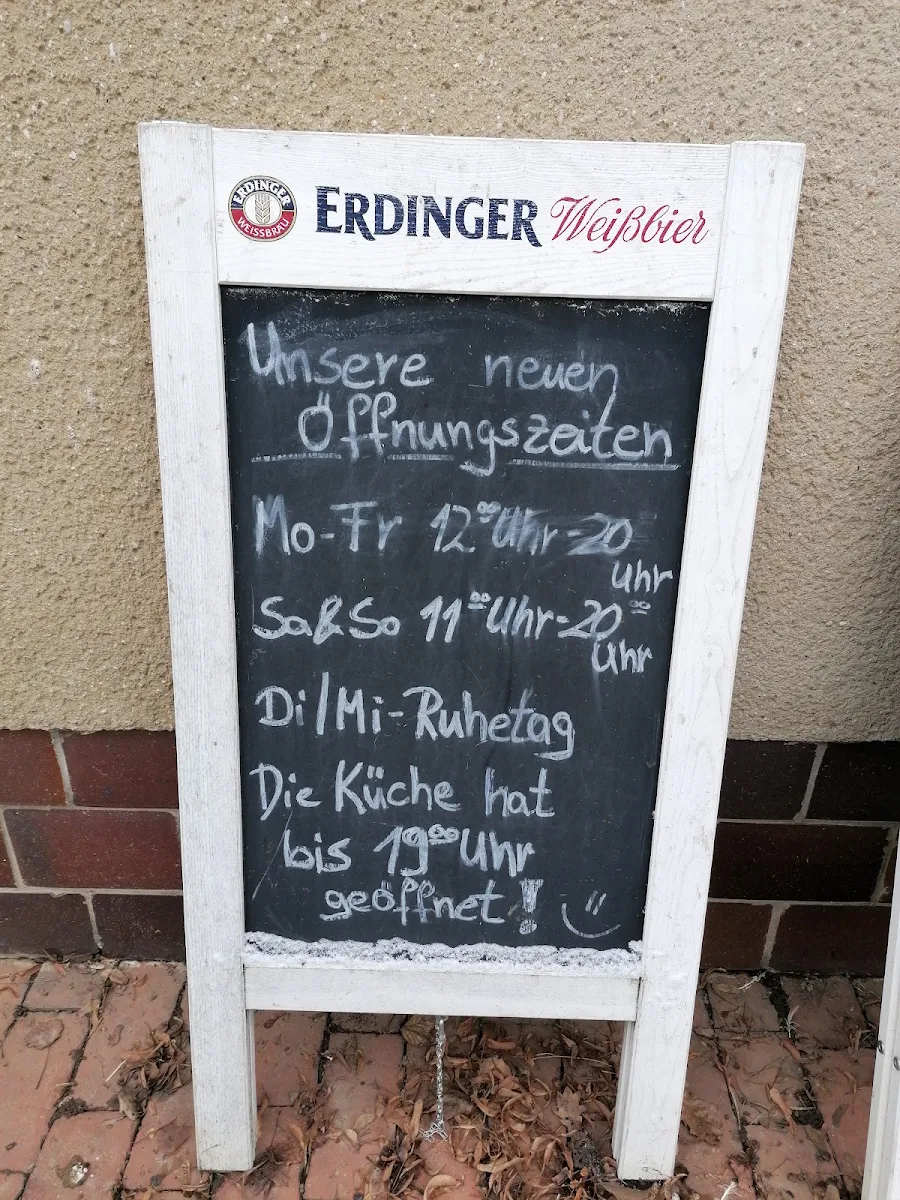 ERDINGER WEISSBRÄU ERDINGER Weißbier
Unsere neuen
Öffnungszeiten
Mo-Fr 12⁰⁰Uhr-20
Uhr
Sa&So 11⁰⁰Uhr-20⁰⁰
Uhr
Di/Mi-Ruhetag
Die Küche hat
bis 19⁰⁰Uhr
geöffnet!